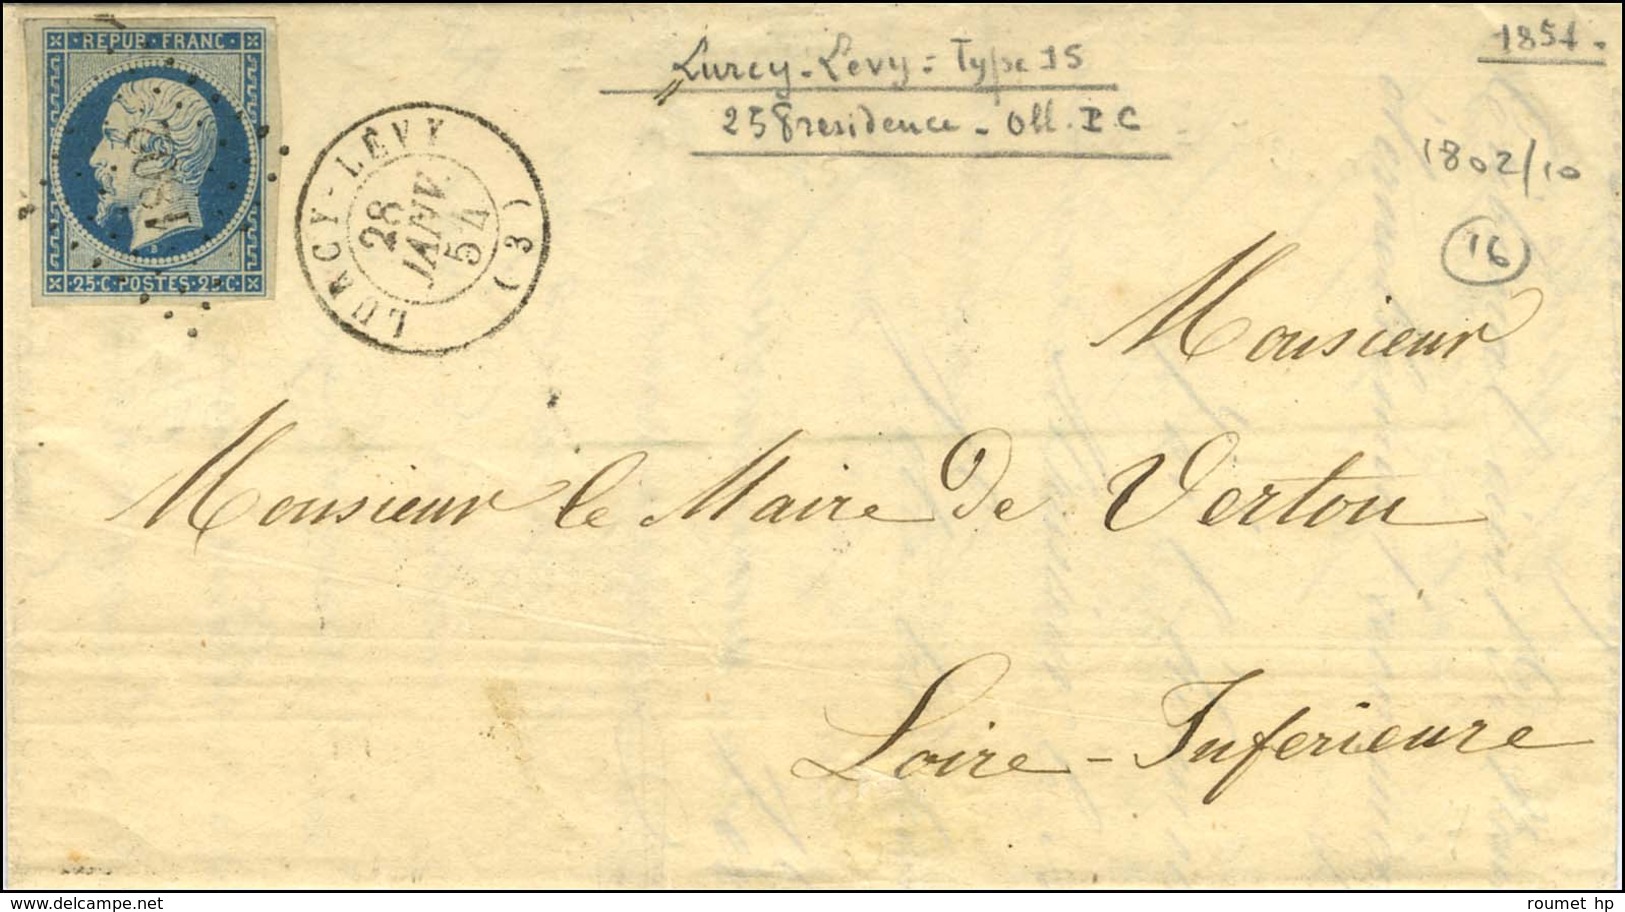 REPUB·FRANC·
1802
·25·C·POSTES·25·C·
LURCY-LÉVY (3)
28
JANV.
54
Lurcy-Lévy = Type 15
25 Presidence - Obl. P.C
1854.
1802/10
16
Monsieur
Monsieur le Maire de Vertou
Loire-Inférieure
© roumet hp